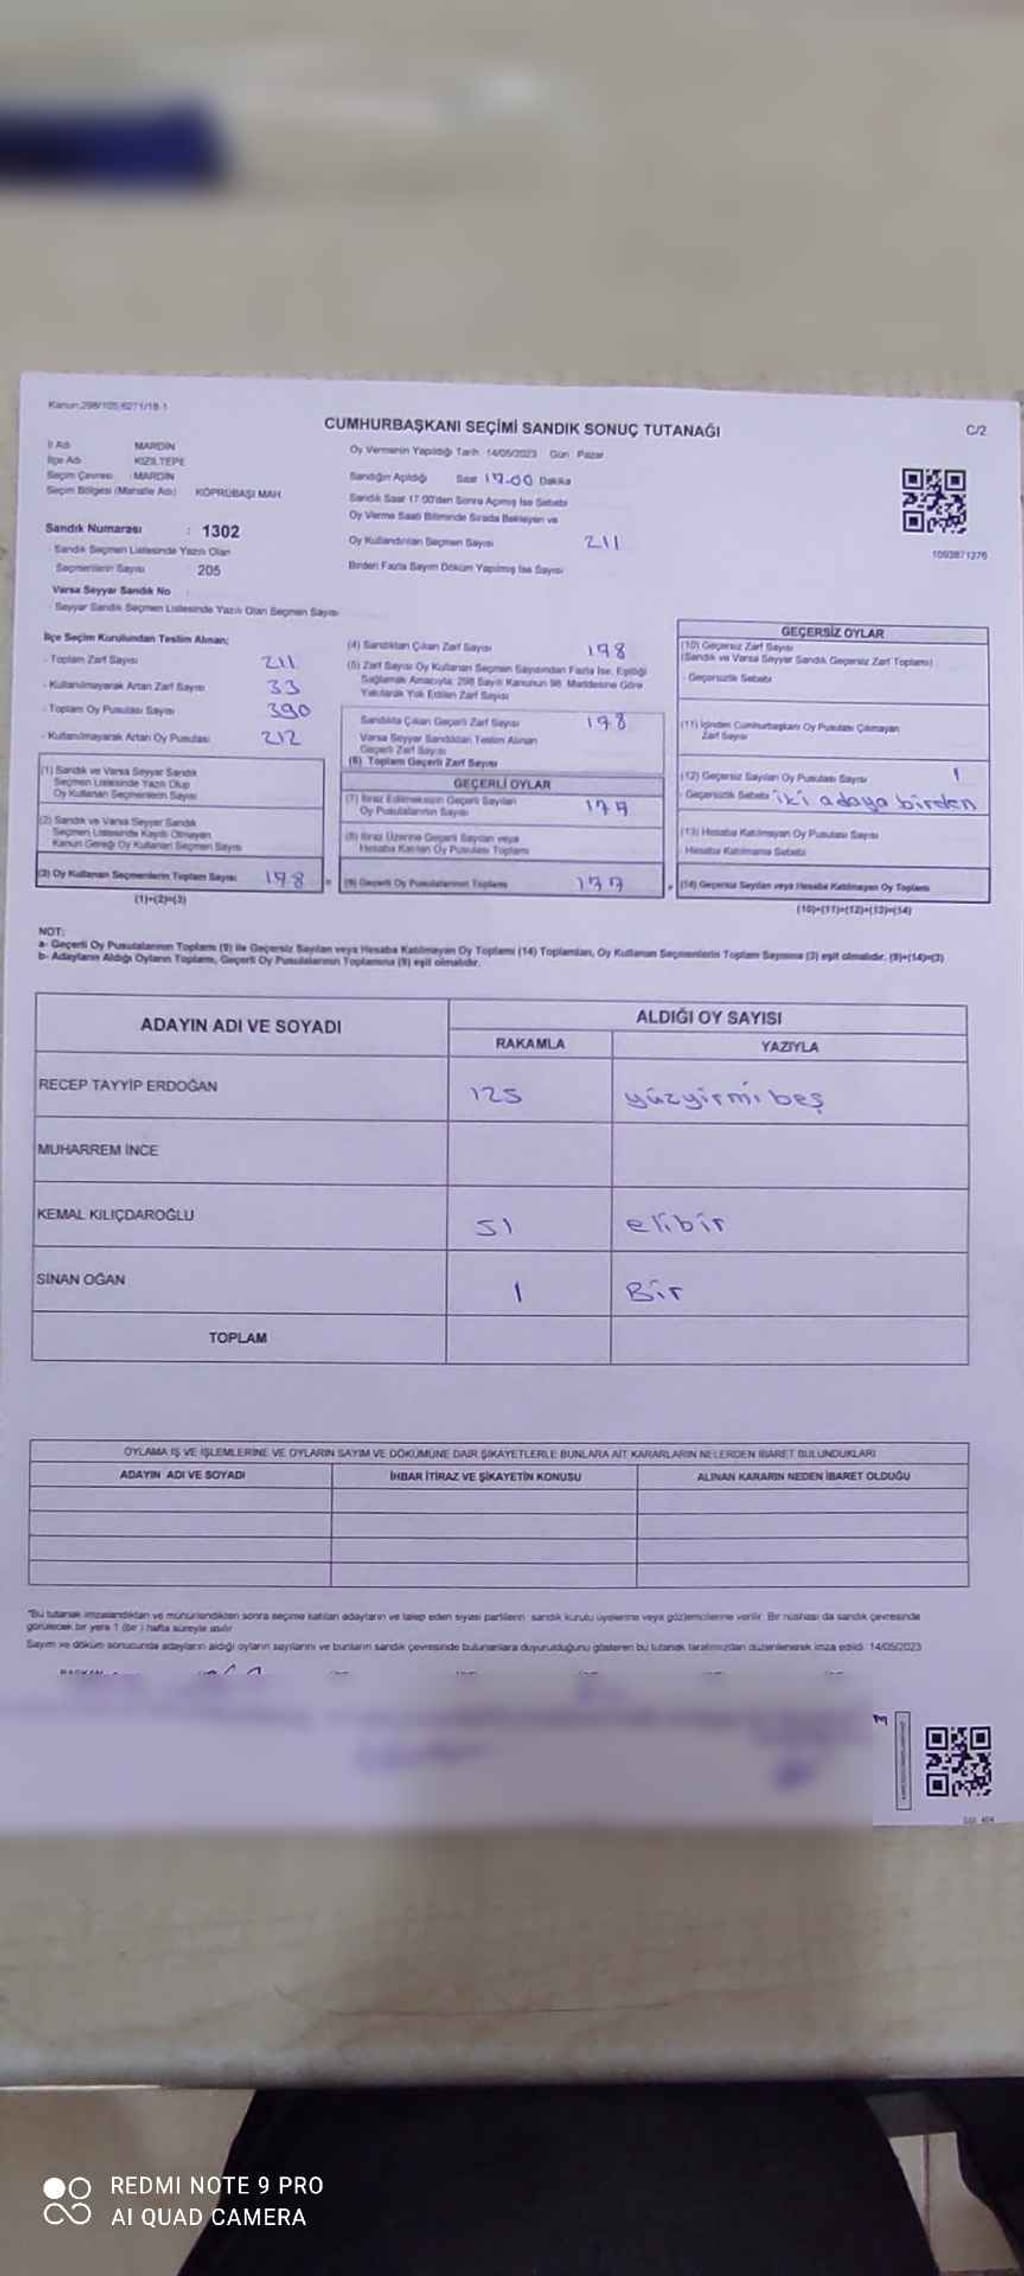 Kanun:298/105,6271/18-1
CUMHURBAŞKANI SEÇİMİ SANDIK SONUÇ TUTANAĞI
C/2
İl Adı MARDİN
İlçe Adı KIZILTEPE
Seçim Çevresi : MARDİN
Seçim Bölgesi (Mahalle Adı) KÖPRÜBAŞI MAH.
Oy Vermenin Yapıldığı Tarih 14/05/2023 Gün Pazar
Sandığın Açıldığı Saat 17.00 Dakika
Sandık Saat 17.00'den Sonra Açılmış İse Sebebi
Oy Verme Saati Bitiminde Sırada Bekleyen ve
Oy Kullandırılan Seçmen Sayısı 211
Birden Fazla Sayım Döküm Yapılmış İse Sayısı
1093871276
Sandık Numarası : 1302
Sandık Seçmen Listesinde Yazılı Olan
Seçmenlerin Sayısı 205
Varsa Seyyar Sandık No
Seyyar Sandık Seçmen Listesinde Yazılı Olan Seçmen Sayısı
İlçe Seçim Kurulundan Teslim Alınan;
- Toplam Zarf Sayısı 211
- Kullanılmayarak Artan Zarf Sayısı 33
- Toplam Oy Pusulası Sayısı 390
- Kullanılmayarak Artan Oy Pusulası 212
(1) Sandık ve Varsa Seyyar Sandık
Seçmen Listesinde Yazılı Olup
Oy Kullanan Seçmenlerin Sayısı
(2) Sandık ve Varsa Seyyar Sandık
Seçmen Listesinde Kayıtlı Olmayan
Kanun Gereği Oy Kullanan Seçmen Sayısı
(3) Oy Kullanan Seçmenlerin Toplam Sayısı 178
(1)+(2)=(3)
(4) Sandıktan Çıkan Zarf Sayısı 178
(5) Zarf Sayısı Oy Kullanan Seçmen Sayısından Fazla İse, Eşitliği
Sağlamak Amacıyla, 298 Sayılı Kanunun 98. Maddesine Göre
Yakılarak Yok Edilen Zarf Sayısı
Sandıkta Çıkan Geçerli Zarf Sayısı 178
Varsa Seyyar Sandıktan Teslim Alınan
Geçerli Zarf Sayısı
(6) Toplam Geçerli Zarf Sayısı
GEÇERLİ OYLAR
(7) İtiraz Edilmeksizin Geçerli Sayılan
Oy Pusulalarının Sayısı 177
(8) İtiraz Üzerine Geçerli Sayılan veya
Hesaba Katılan Oy Pusulası Toplamı
(9) Geçerli Oy Pusulalarının Toplamı 177
GEÇERSİZ OYLAR
(10) Geçersiz Zarf Sayısı
(Sandık ve Varsa Seyyar Sandık Geçersiz Zarf Toplamı)
- Geçersizlik Sebebi
(11) İçinden Cumhurbaşkanı Oy Pusulası Çıkmayan
Zarf Sayısı
(12) Geçersiz Sayılan Oy Pusulası Sayısı 1
- Geçersizlik Sebebi iki adaya birden
(13) Hesaba Katılmayan Oy Pusulası Sayısı
Hesaba Katılmama Sebebi
(14) Geçersiz Sayılan veya Hesaba Katılmayan Oy Toplamı
(10)+(11)+(12)+(13)=(14)
NOT:
a- Geçerli Oy Pusulalarının Toplamı (9) ile Geçersiz Sayılan veya Hesaba Katılmayan Oy Toplamı (14) Toplamları, Oy Kullanan Seçmenlerin Toplam Sayısına (3) eşit olmalıdır. (9)+(14)=(3)
b- Adayların Aldığı Oyların Toplamı, Geçerli Oy Pusulalarının Toplamına (9) eşit olmalıdır.
ADAYIN ADI VE SOYADI
ALDIĞI OY SAYISI
RAKAMLA YAZIYLA
RECEP TAYYİP ERDOĞAN 125 yüzyirmi beş
MUHARREM İNCE
KEMAL KILIÇDAROĞLU 51 elibir
SİNAN OĞAN 1 Bir
TOPLAM
OYLAMA İŞ VE İŞLEMLERİNE VE OYLARIN SAYIM VE DÖKÜMÜNE DAİR ŞİKAYETLERLE BUNLARA AİT KARARLARIN NELERDEN İBARET BULUNDUKLARI
ADAYIN ADI VE SOYADI İHBAR İTİRAZ VE ŞİKAYETİN KONUSU ALINAN KARARIN NEDEN İBARET OLDUĞU
*Bu tutanak imzalandıktan ve mühürlendikten sonra seçime katılan adayların ve talep eden siyasi partilerin sandık kurulu üyelerine veya gözlemcilerine verilir. Bir nüshası da sandık çevresinde
görülecek bir yere 1 (bir) hafta süreyle asılır.
Sayım ve döküm sonucunda adayların aldığı oyların sayılarını ve bunların sandık çevresinde bulunanlara duyurulduğunu gösteren bu tutanak tarafımızdan düzenlenerek imza edildi. 14/05/2023
REDMI NOTE 9 PRO
AI QUAD CAMERA